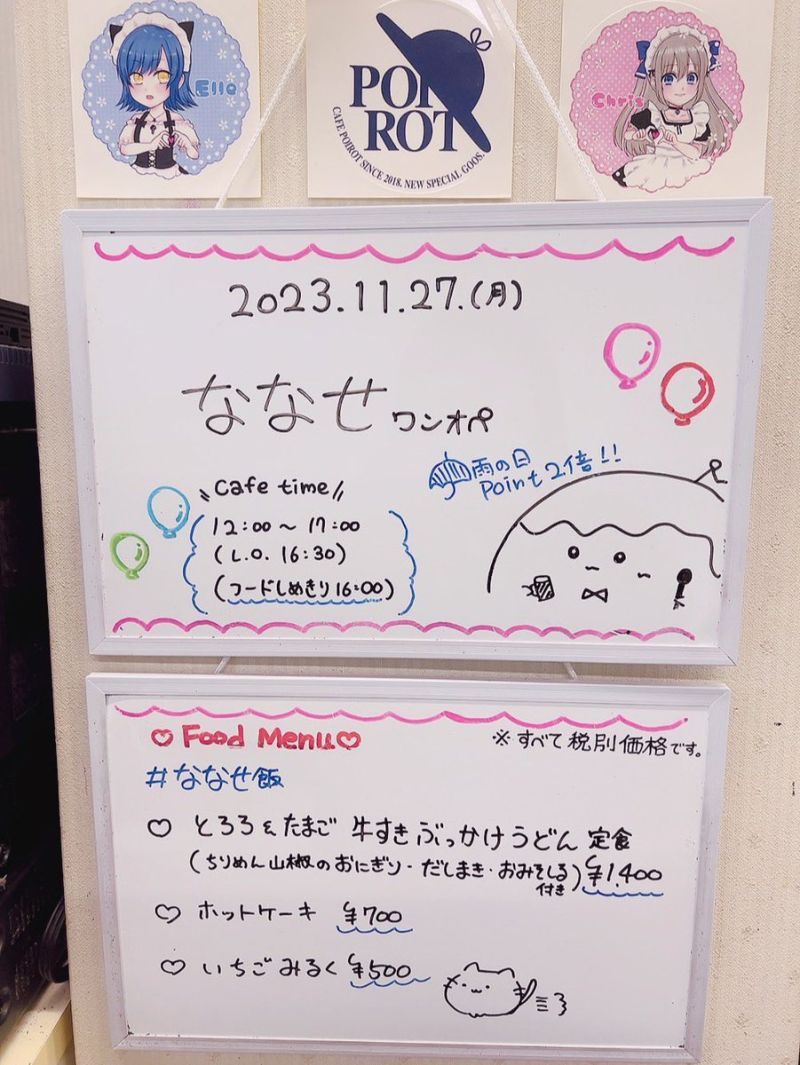 Elle
POIROT
CAFE POIROT SINCE 2018. NEW SPECIAL GOOS.
Chris
2023.11.27.(月)
ななせ ワンオペ
雨の日
Point 2倍!!
\\ Cafe time //
12:00〜17:00
(L.O. 16:30)
(フードしめきり16:00)
♡ Food Menu ♡
※すべて税別価格です。
#ななせ飯
♡ とろろ&たまご 牛すきぶっかけうどん 定食
(ちりめん山椒のおにぎり・だしまき・おみそしる付き) ¥1,400
♡ ホットケーキ ¥700
♡ いちごみるく ¥500